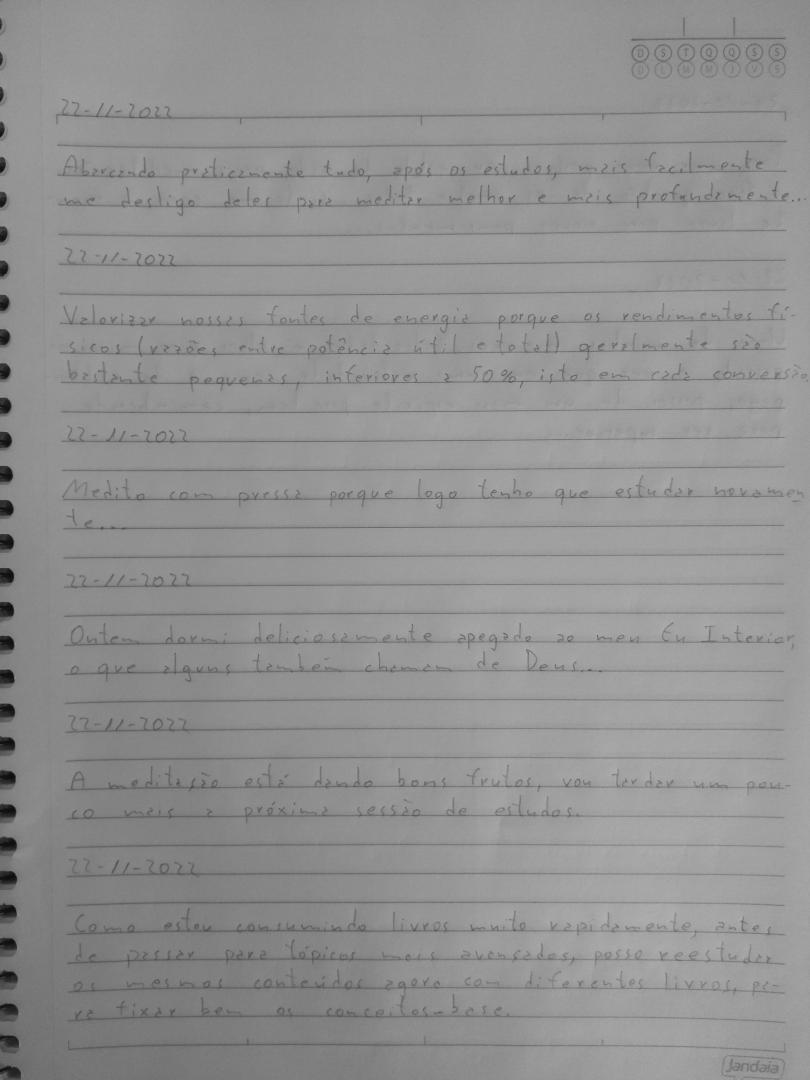 D S T Q Q S S
D L M M J V S
22-11-2022
Abarcando praticamente tudo, após os estudos, mais facilmente
me desligo deles para meditar melhor e mais profundamente...
22-11-2022
Valorizar nossas fontes de energia porque os rendimentos fí-
sicos (razões entre potência útil e total) geralmente são
bastante pequenas, inferiores a 50%, isto em cada conversão.
22-11-2022
Medito com pressa porque logo tenho que estudar novamen
te...
22-11-2022
Ontem dormi deliciosamente apegado ao meu Eu Interior,
o que alguns também chamam de Deus...
22-11-2022
A meditação está dando bons frutos, vou tardar um pou-
co mais a próxima sessão de estudos.
22-11-2022
Como estou consumindo livros muito rapidamente, antes
de passar para tópicos mais avançados, posso reestudar
os mesmos conteúdos agora com diferentes livros, pa-
ra fixar bem os conceitos-base.
Jandaia